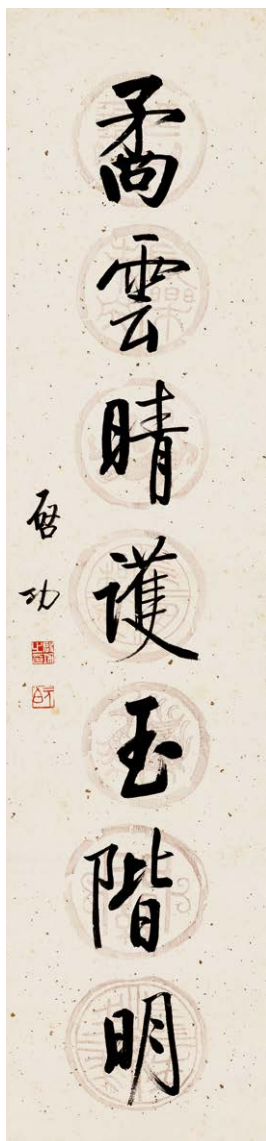 矞雲晴護玉階明
啓功